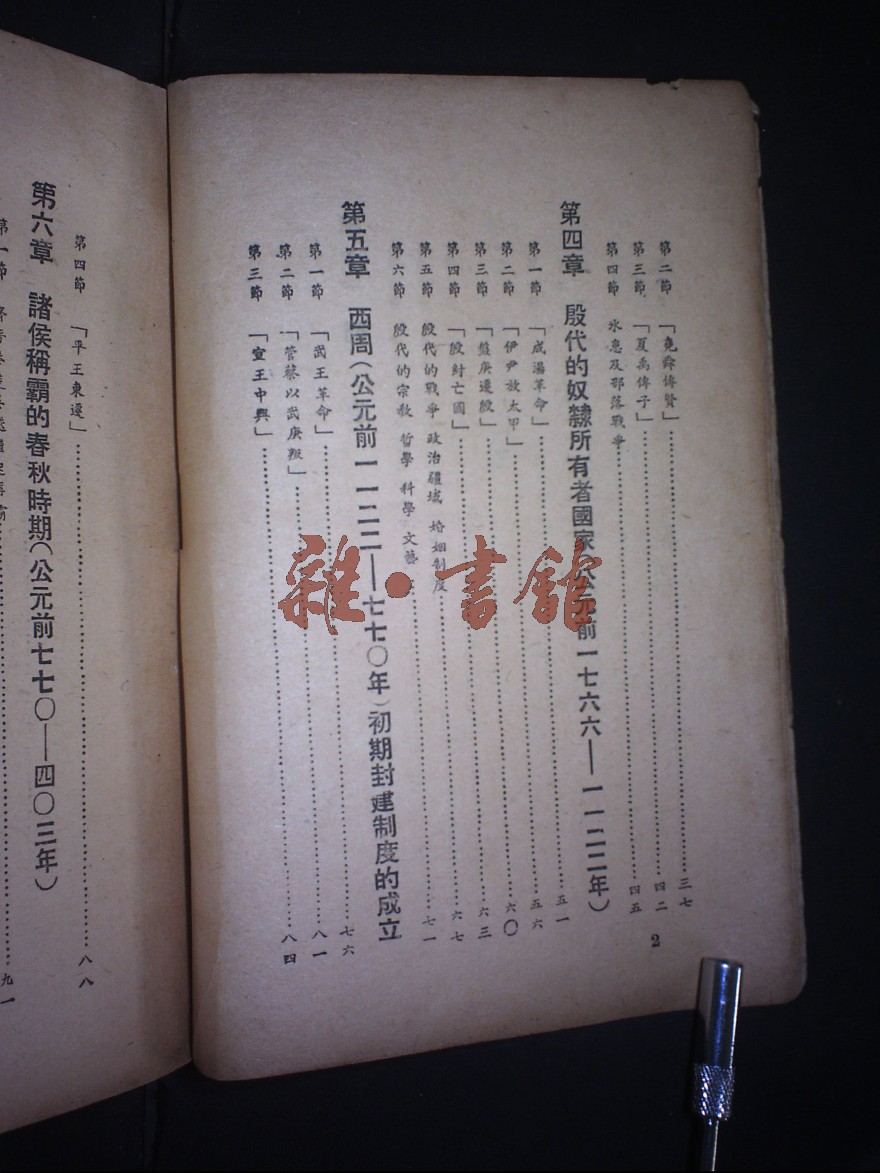 第二節 「堯舜傳賢」……三七
第三節 「夏禹傳子」……四二
第四節 水患及部落戰爭……四五
第四章 殷代的奴隸所有者國家(公元前一七六六——一一二二年)
第一節 「成湯革命」……五一
第二節 「伊尹放太甲」……五六
第三節 「盤庚遷殷」……六〇
第四節 「殷紂亡國」……六三
第五節 殷代的戰爭 政治疆域 婚姻制度……六七
第六節 殷代的宗教 哲學 科學 文藝……七一
第五章 西周(公元前一一二二——七七〇年)初期封建制度的成立
第一節 「武王革命」……七六
第二節 「管蔡以武庚叛」……八一
第三節 「宣王中興」……八四
2
第四節 「平王東遷」……八八
第六章 諸侯稱霸的春秋時期(公元前七七〇——四〇三年)
第一節
九一
雜·書館